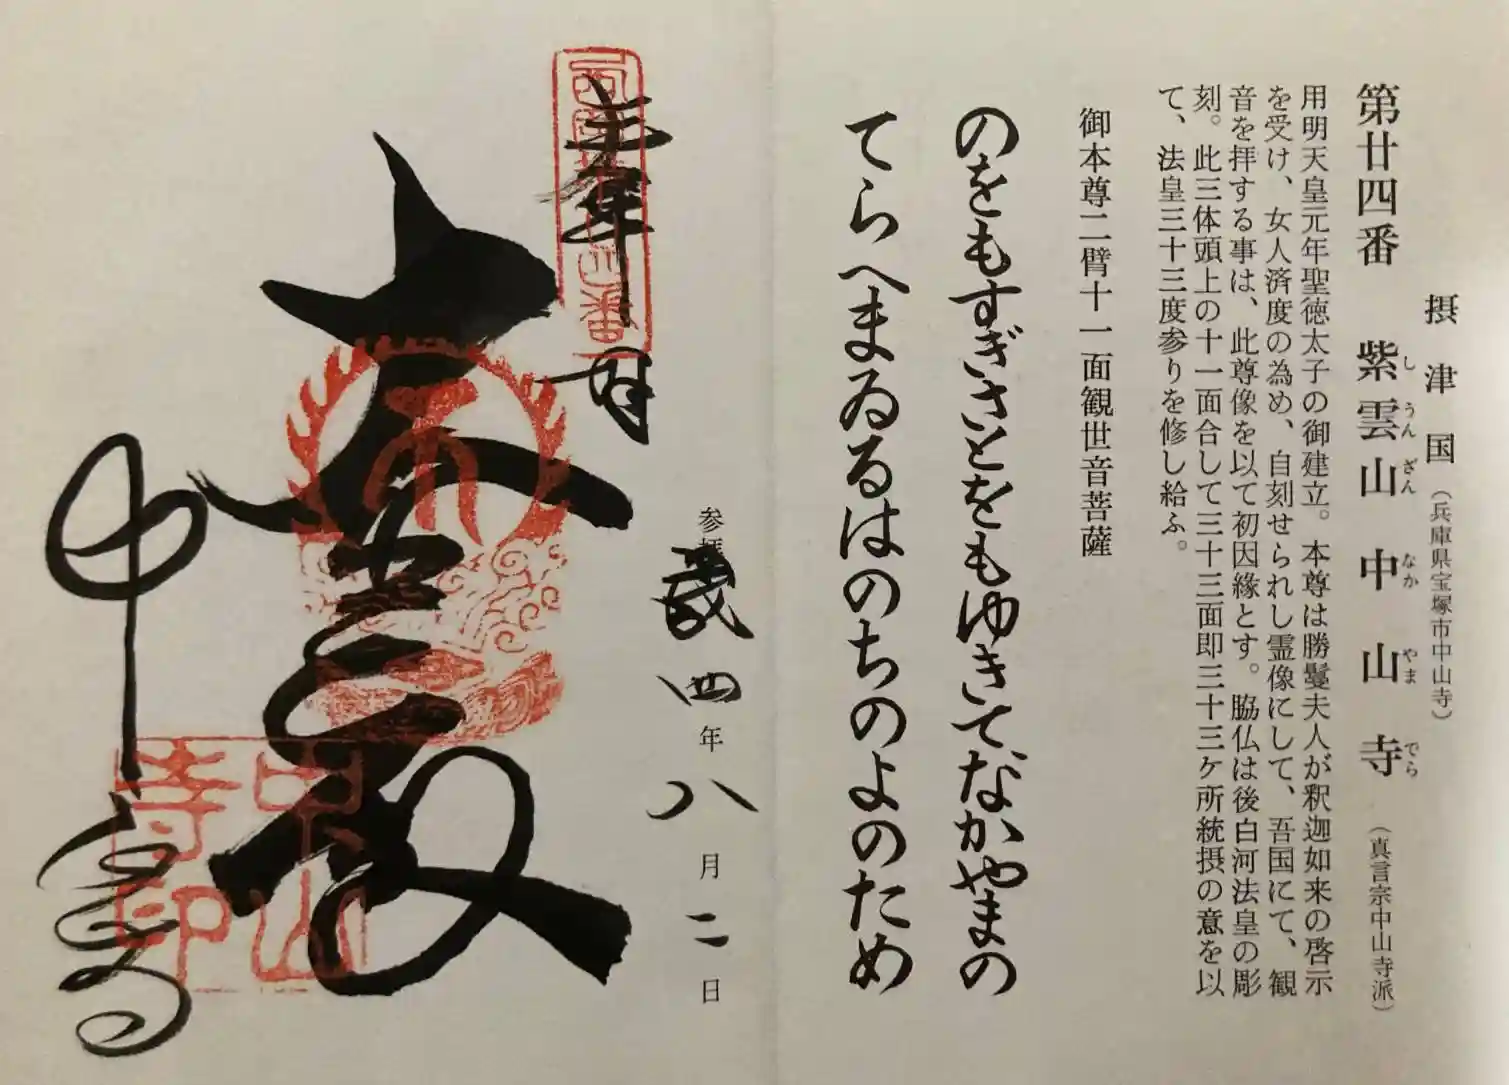 摂津国（兵庫県宝塚市中山寺）
第廿四番 紫雲山 中山寺（真言宗中山寺派）
しうんざん なかやまでら
用明天皇元年聖徳太子の御建立。本尊は勝鬘夫人が釈迦如来の啓示
を受け、女人済度の為め、自刻せられし霊像にして、吾国にて、観
音を拝する事は、此尊像を以て初因縁とす。脇仏は後白河法皇の彫
刻。此三体頭上の十一面合して三十三面即三十三ケ所統摂の意を以
て、法皇三十三度参りを修し給ふ。
御本尊二臂十一面観世音菩薩
のをもすぎさとをもゆきてなかやまの
てらへまゐるはのちのよのため
奉拝
参拝 四年八月二日
大悲殿
中山寺
中山寺印